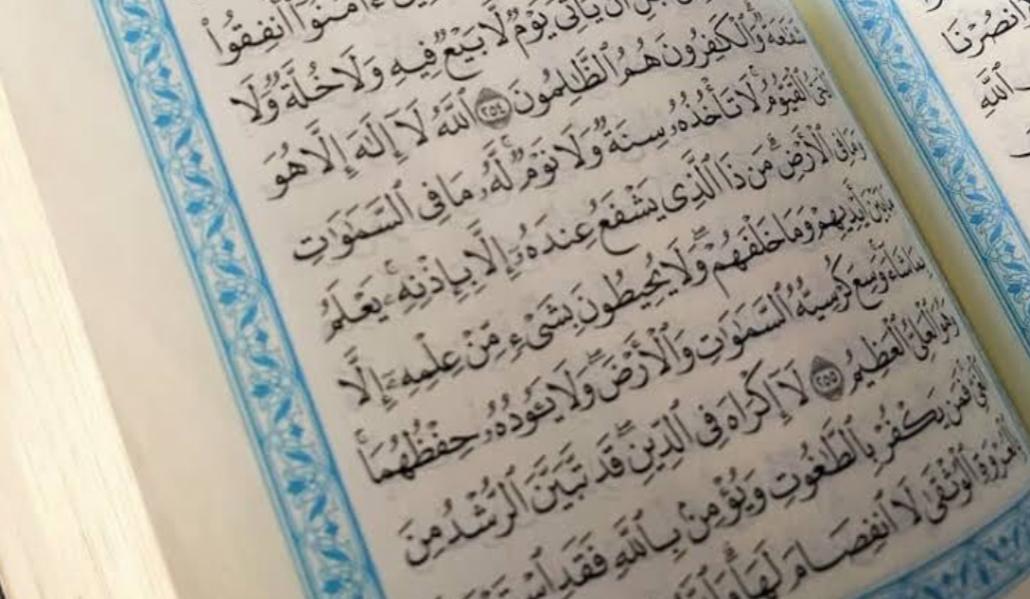 ءَامَنُوٓا۟ أَنفِقُوا۟
أَن يَأْتِىَ يَوْمٌ لَّا بَيْعٌ فِيهِ وَلَا خُلَّةٌ وَلَا
شَفَٰعَةٌ وَٱلْكَٰفِرُونَ هُمُ ٱلظَّٰلِمُونَ ٢٥٤ ٱللَّهُ لَآ إِلَٰهَ إِلَّا هُوَ
ٱلْحَىُّ ٱلْقَيُّومُ لَا تَأْخُذُهُۥ سِنَةٌ وَلَا نَوْمٌ لَّهُۥ مَا فِى ٱلسَّمَٰوَٰتِ
وَمَا فِى ٱلْأَرْضِ مَن ذَا ٱلَّذِى يَشْفَعُ عِندَهُۥٓ إِلَّا بِإِذْنِهِۦ يَعْلَمُ
مَا بَيْنَ أَيْدِيهِمْ وَمَا خَلْفَهُمْ وَلَا يُحِيطُونَ بِشَىْءٍ مِّنْ عِلْمِهِۦٓ إِلَّا
بِمَا شَآءَ وَسِعَ كُرْسِيُّهُ ٱلسَّمَٰوَٰتِ وَٱلْأَرْضَ وَلَا يَـُٔودُهُۥ حِفْظُهُمَا
وَهُوَ ٱلْعَلِىُّ ٱلْعَظِيمُ ٢٥٥ لَآ إِكْرَاهَ فِى ٱلدِّينِ قَد تَّبَيَّنَ ٱلرُّشْدُ مِنَ
ٱلْغَىِّ فَمَن يَكْفُرْ بِٱلطَّٰغُوتِ وَيُؤْمِنۢ بِٱللَّهِ فَقَدِ
ٱلْوُثْقَىٰ لَا ٱنفِصَامَ لَهَا
ٱللَّهِ